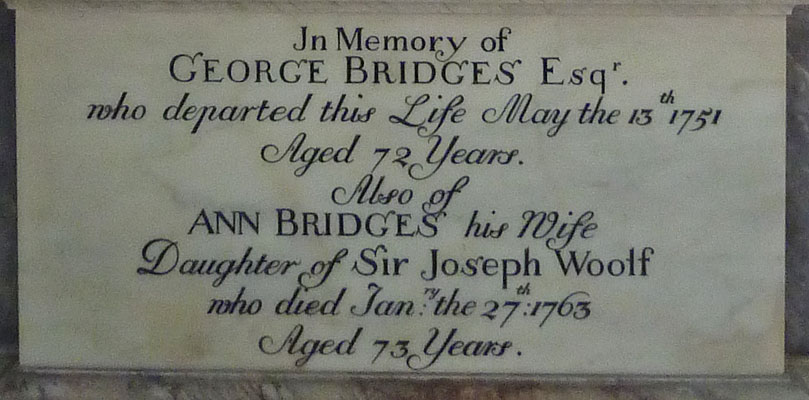 In Memory of
GEORGE BRIDGES Esqr.
who departed this Life May the 13th 1751
Aged 72 Years.
Also of
ANN BRIDGES his Wife
Daughter of Sir Joseph Woolf
who died Jan:ry the 27th: 1763
Aged 73 Years.